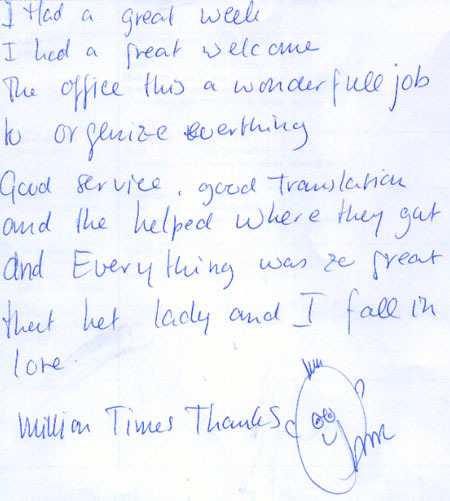 I Had a great week
I had a great welcome
The office this a wonderfull job
to orgenize everthing
Good service, good translation
and the helped where they gat
and Everything was ze great
that het lady and I fall in
love
Million Times Thanks